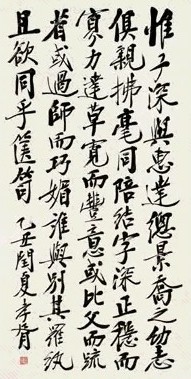 惟子深與惠達總景喬之幼志
俱親拂毫同陪結字深正穩而
寡力達草寬而豐意或比父而疏
省或過師而巧媚誰與別其羅紈
且欲同乎篋笥 乙丑閏夏